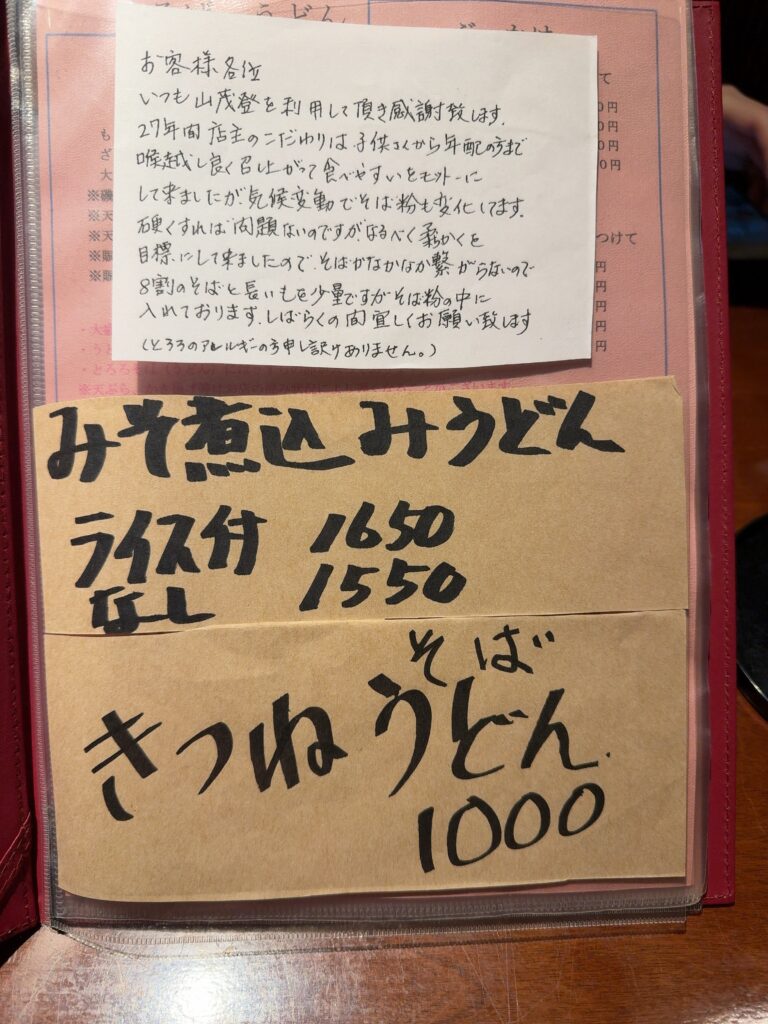 お客様各位
いつも山茂登を利用して頂き感謝致します.
27年間店主のこだわりは子供さんから年配の方まで
喉越し良く召し上がって食べやすいとモットーに
して来ましたが気候変動でそば粉も変化してます.
硬くすれば問題ないのですが、なるべく柔かくを
目標にして来ましたので、そばがなかなか繋がらないので
8割のそばと長いもを少量ですがそば粉の中に
入れております.しばらくの間宜しくお願い致します
(とろろのアレルギーの方申し訳けありません。)
みそ煮込みうどん
ライス付 1650
なし 1550
そば
きつねうどん.
1000